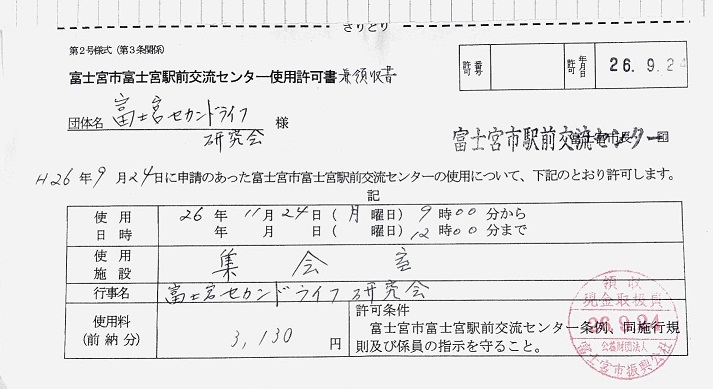 きりとり
第2号様式（第3条関係）
富士宮市富士宮駅前交流センター使用許可書兼領収書
許可番号
許可年月日 26.9.24
団体名 富士宮セカンドライフ研究会 様
富士宮市駅前交流センター
H26年9月24日に申請のあった富士宮市富士宮駅前交流センターの使用について、下記のとおり許可します。
記
使用日時 26年11月24日（月曜日）9時00分から
年 月 日（ 曜日）12時00分まで
使用施設 集会室
行事名 富士宮セカンドライフ研究会
使用料（前納分） 3,130円
許可条件
富士宮市富士宮駅前交流センター条例、同施行規
則及び係員の指示を守ること。
領収
現金取扱員
26.9.24
公益財団法人
富士宮市振興公社